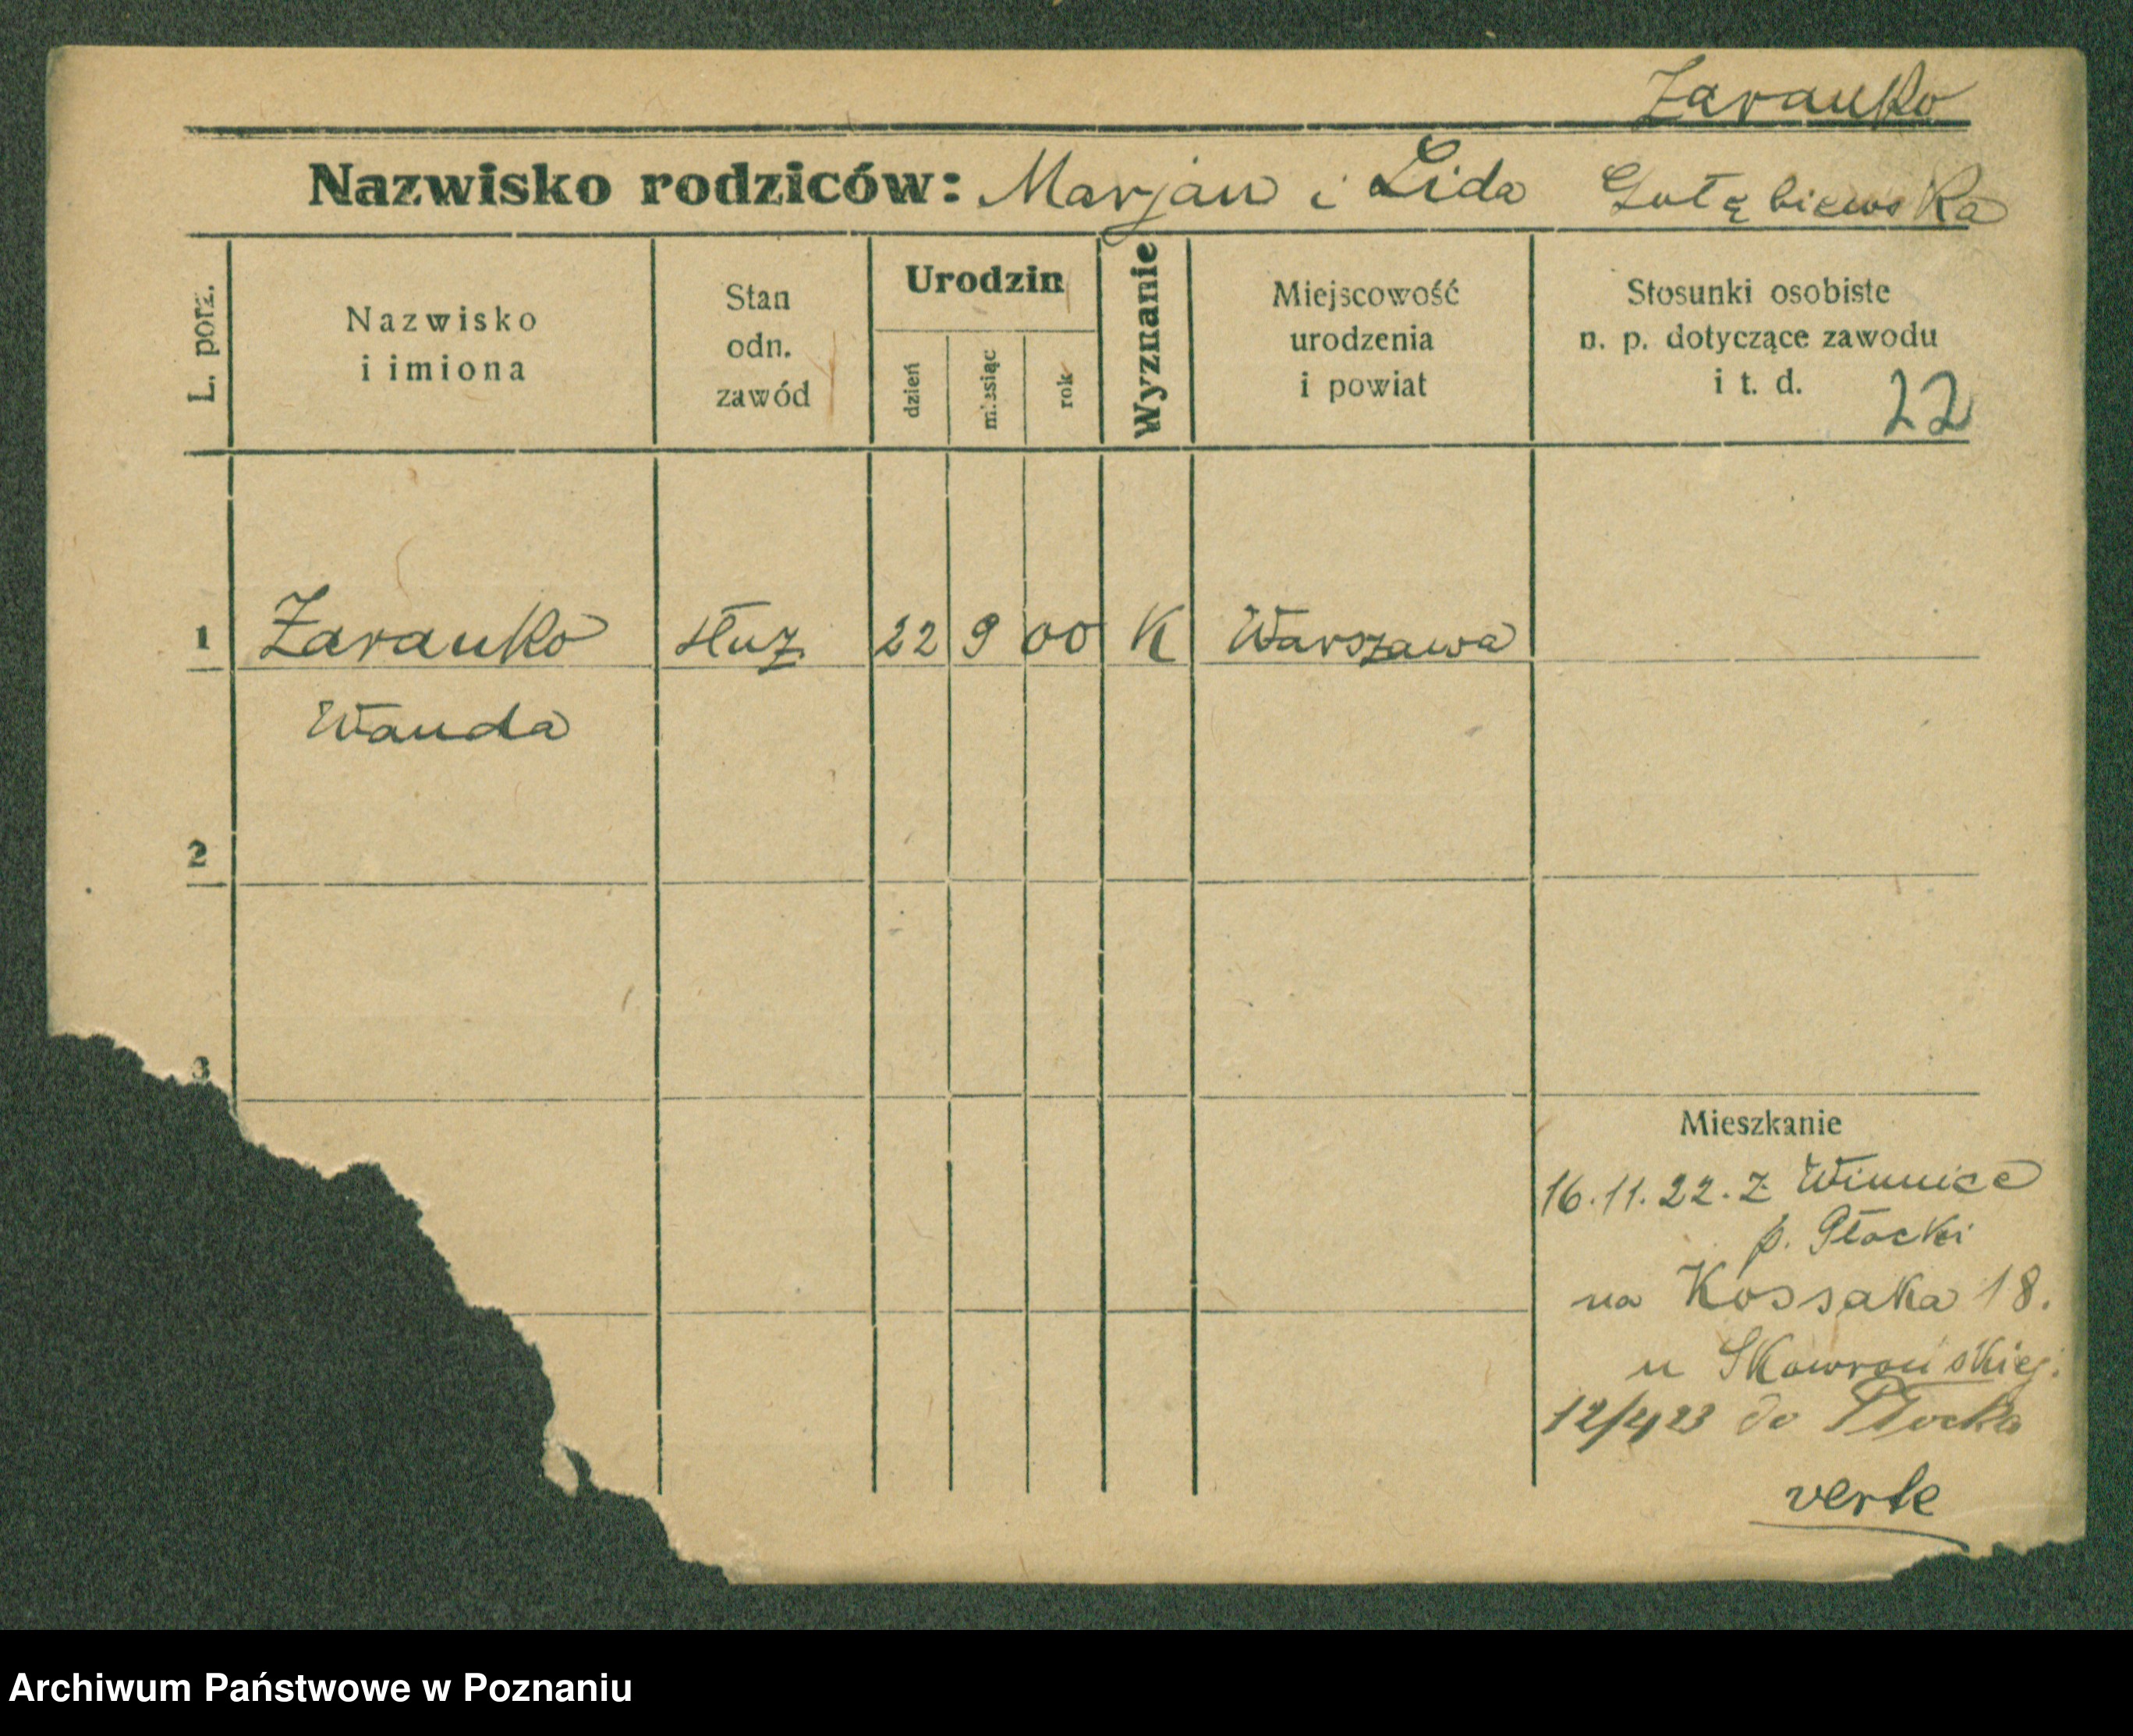 Zaranko
Nazwisko rodziców: Marjan i Lida Gołębiewska
L. porz.
Nazwisko
i imiona
Stan
odn.
zawód
Urodzin
dzień
miesiąc
rok
Wyznanie
Miejscowość
urodzenia
i powiat
Stosunki osobiste
n. p. dotyczące zawodu
i t. d.
22
1 Zaranko służ. 22 9 00 K Warszawa
Wanda
2
3
Mieszkanie
16.11.22. z Winnice
p. Płocki
na Kossaka 18.
u Skowrońskiej.
12/4 23 do Płocka
verte
Archiwum Państwowe w Poznaniu